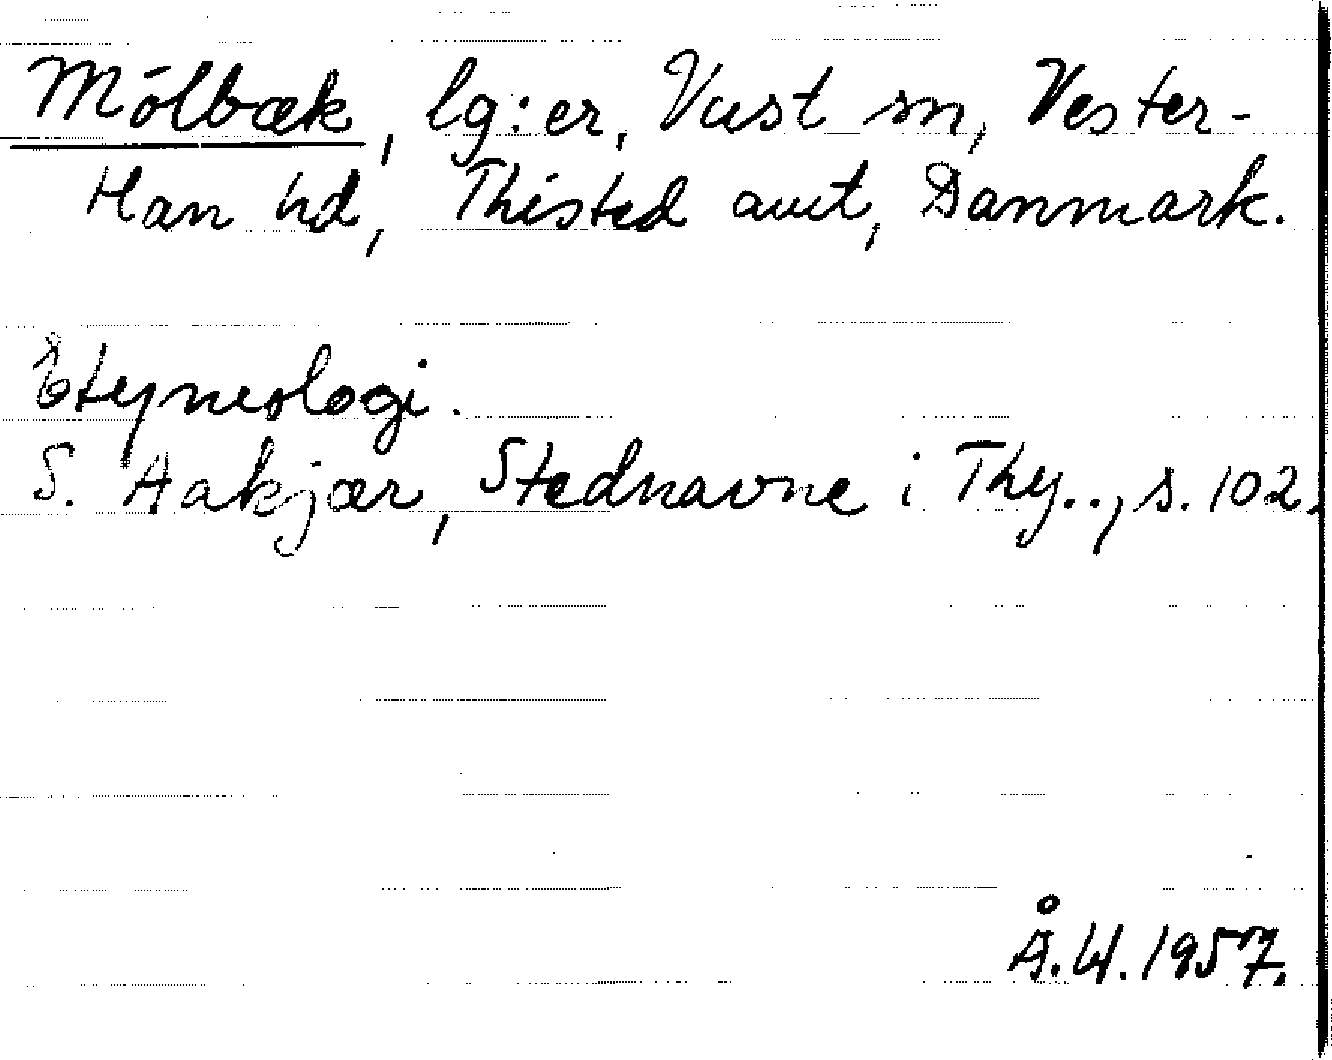 Mölbæk, lg:er, Vust sn, Vester-
Han hd, Thisted amt, Danmark.
Etymologi.
S. Aakjær, Stednavne i Thy.., s. 102.
Å.W.1957.